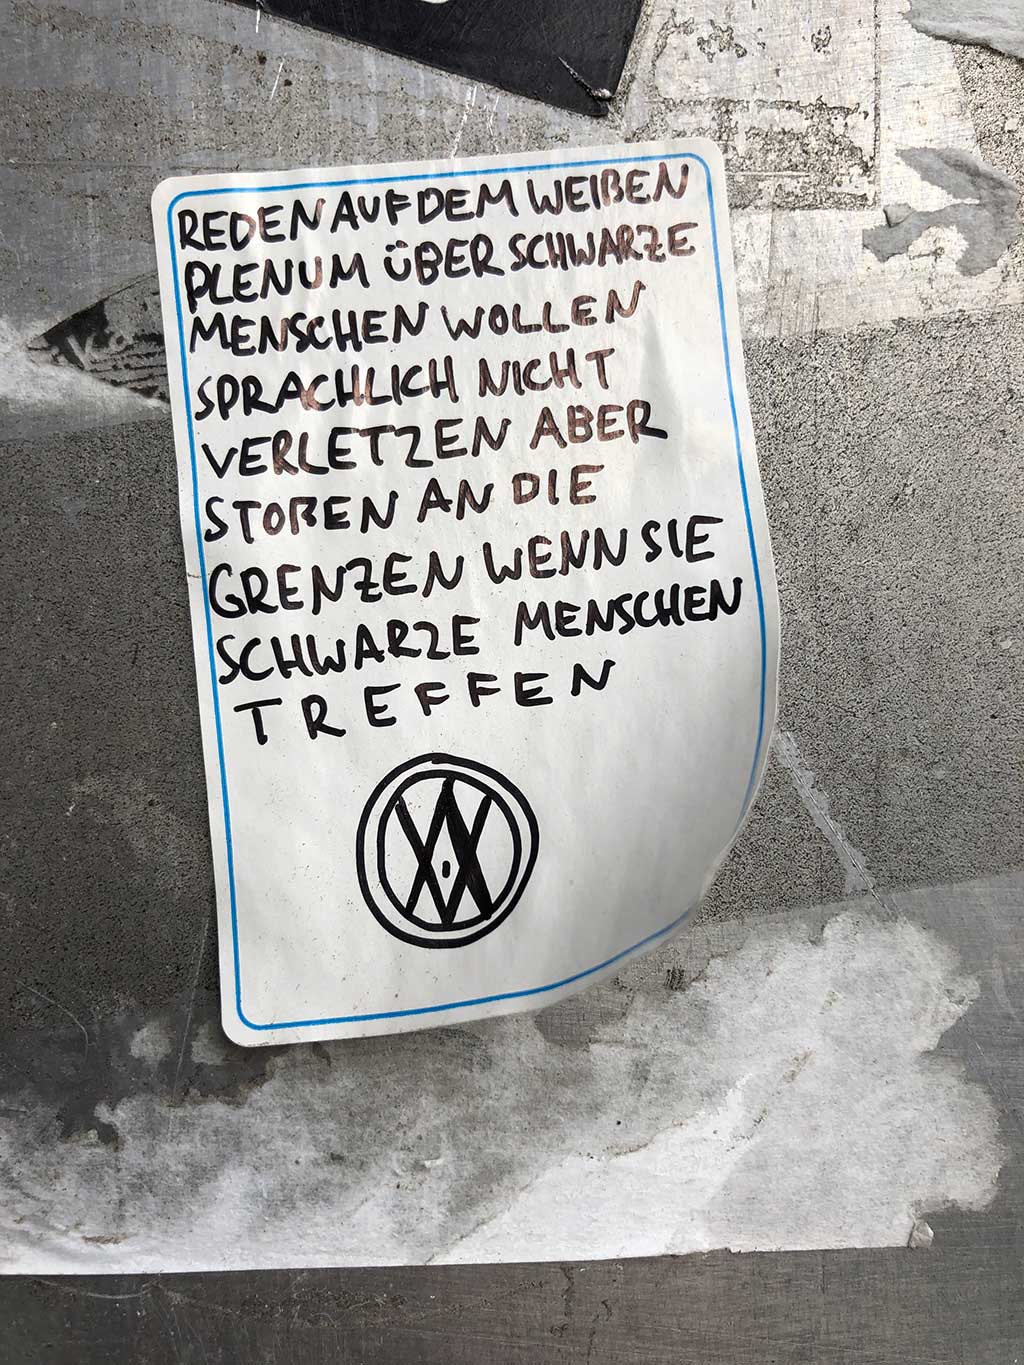 REDEN AUF DEM WEIßEN
PLENUM ÜBER SCHWARZE
MENSCHEN WOLLEN
SPRACHLICH NICHT
VERLETZEN ABER
STOßEN AN DIE
GRENZEN WENN SIE
SCHWARZE MENSCHEN
TREFFEN